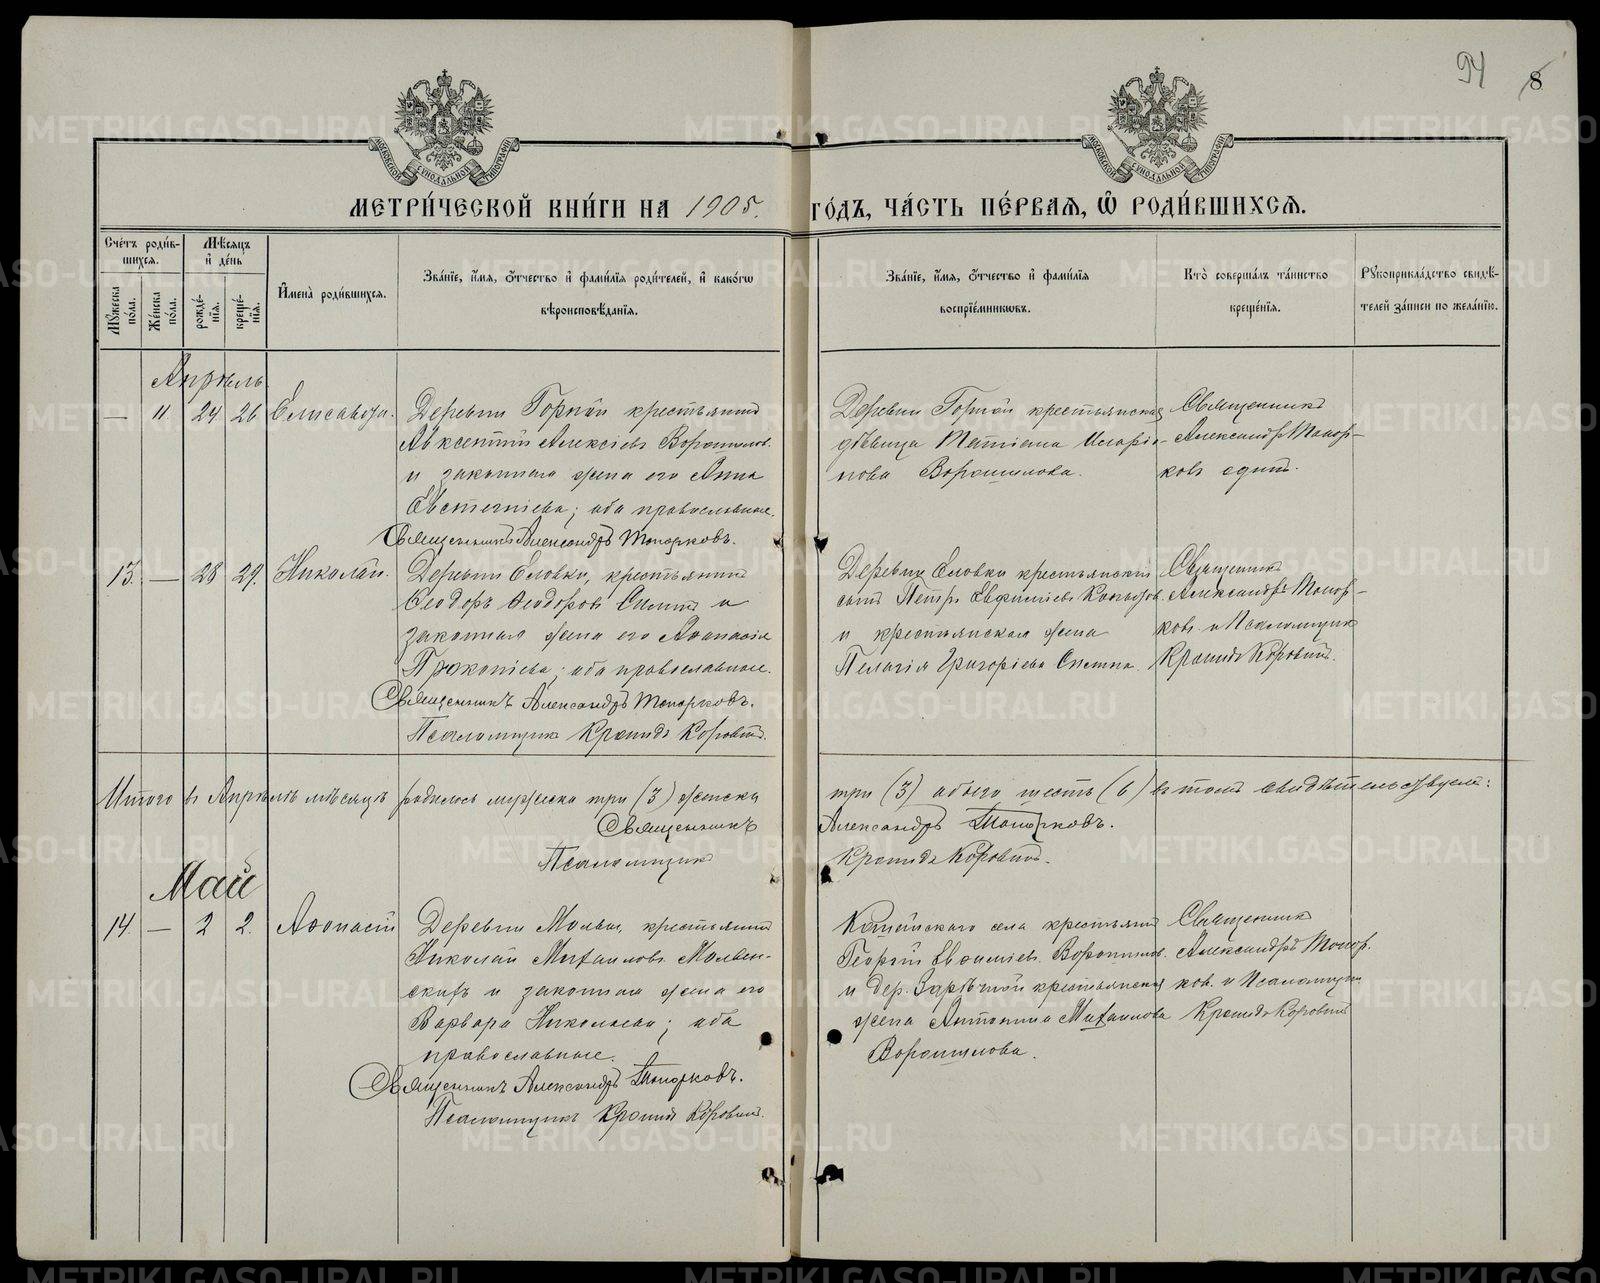 94 8
МЕТРИ́ЧЕСКОЙ КНИ́ГИ НА 1905. ГО́ДЪ, ЧА́СТЬ ПЕ́РВАЯ, Ѡ РОДИ́ВШИХСЯ.
Сче́тъ роди́вшихся.
Мѣ́сяцъ и де́нь
Мꙋ́жеска по́ла.
Же́нска по́ла.
рожде́нїя.
креще́нїя.
И҆мена̀ роди́вшихся.
Зва́нїе, и҆́мя, ѻ҆́тчество и҆ фами́лїя роди́телей, и҆ како́гѡ вѣроисповѣ́данїя.
Зва́нїе, и҆́мя, ѻ҆́тчество и҆ фами́лїя воспрїе́мникѡвъ.
Кто̀ соверша́лъ та́инство креще́нїя.
Рꙋкоприкла́дство свидѣ́телей за́писи по жела́нїю.
Апрѣль
— 11 24 26 Елисавета.
Деревни Горной крестьянинъ
Авксентій Алексіевъ Ворошиловъ
и законная жена его Анна
Евстегніева; оба православные.
Священникъ Александръ Топорковъ.
Деревни Горной крестьянская
дѣвица Татіана Иларіо-
нова Ворошилова.
Священникъ
Александръ Топор-
ковъ единъ.
13. — 28 29. Николай.
Деревни Еловки, крестьянинъ
Ѳеодоръ Ѳеодоровъ
законная жена его Аѳанасія
Прокопіева; оба православные.
Священникъ Александръ Топорковъ.
Псаломщикъ Кронидъ Коровинъ.
Деревни Еловки крестьянскій
сынъ Петръ Евфиміевъ
и крестьянская жена
Пелагія Григоріева
Священникъ
Александръ Топор-
ковъ и Псаломщикъ
Кронидъ Коровинъ.
Итого въ Апрѣлѣ мѣсяцѣ родилось мужеска три (3) женска три (3) обоего шесть (6) въ томъ свидѣтельствуемъ:
Священникъ Александръ Топорковъ.
Псаломщикъ Кронидъ Коровинъ.
Май
14. — 2 2. Аѳонасій
Деревни крестьянинъ
Николай Михаиловъ Мальцев-
скихъ и законная жена его
Варвара Николаева; оба
православные.
Священникъ Александръ Топорковъ.
Псаломщикъ Кронидъ Коровинъ.
села крестьянинъ
Георгій Евфиміевъ Ворошиловъ.
и дер. Зарѣчной крестьянская
жена Антонина Михаилова
Ворошилова.
Священникъ
Александръ Топор-
ковъ и Псаломщикъ
Кронидъ Коровинъ
METRIKI.GASO-URAL.RU